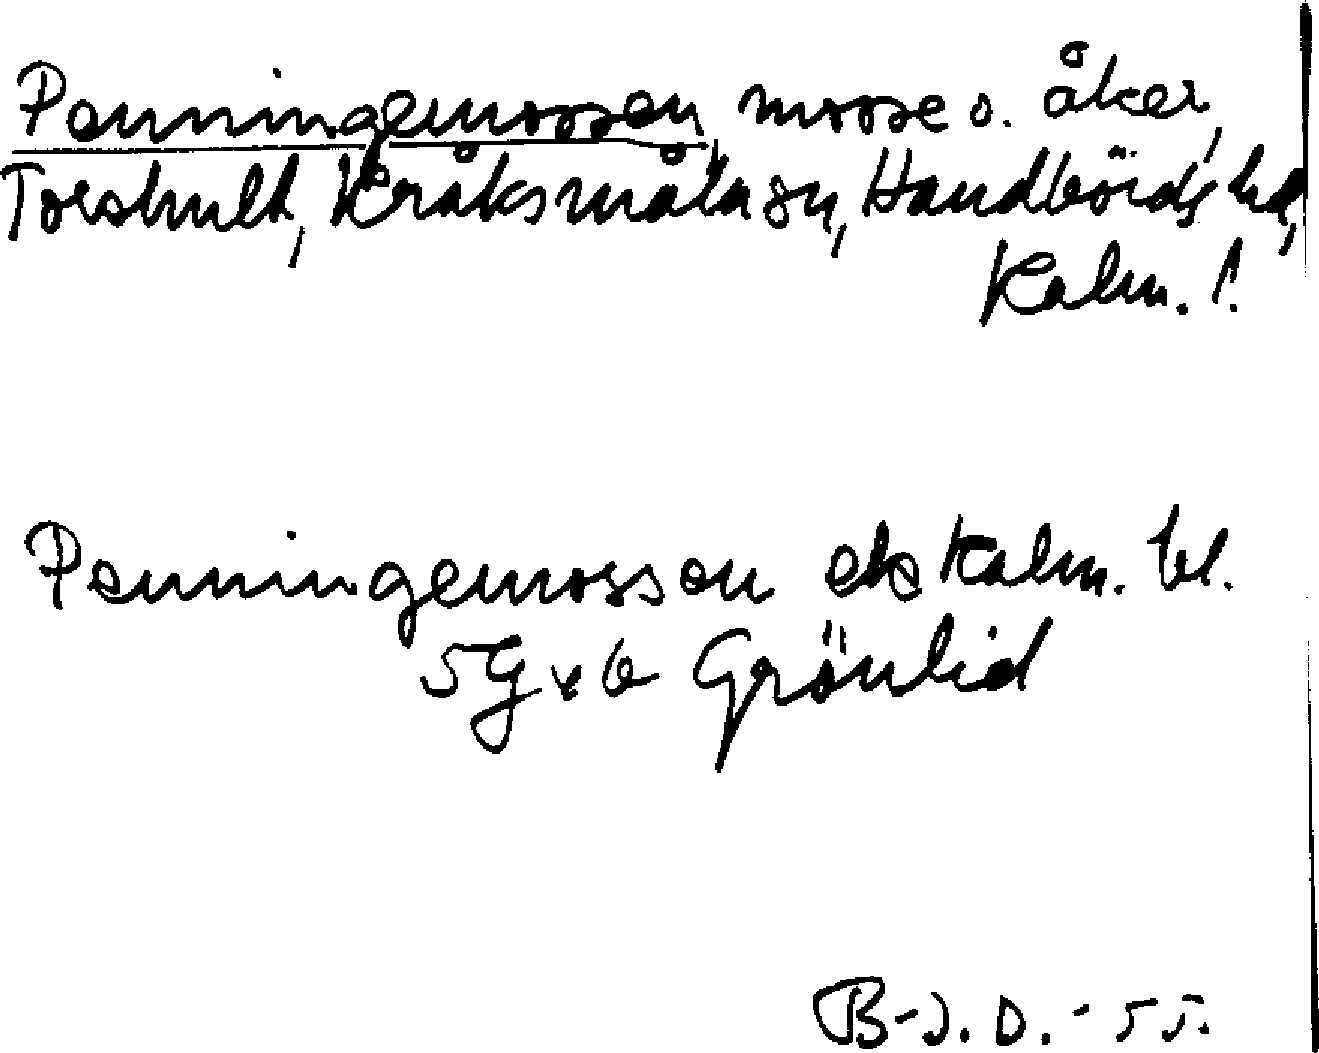 Penningemossen, mosse o. åker,
Torshult, Kråksmåla sn, Handbörds hd,
Kalm. l.
Penningemossen ek Kalm. bl.
5 G v b Grönlid
B-J. D. - 55.